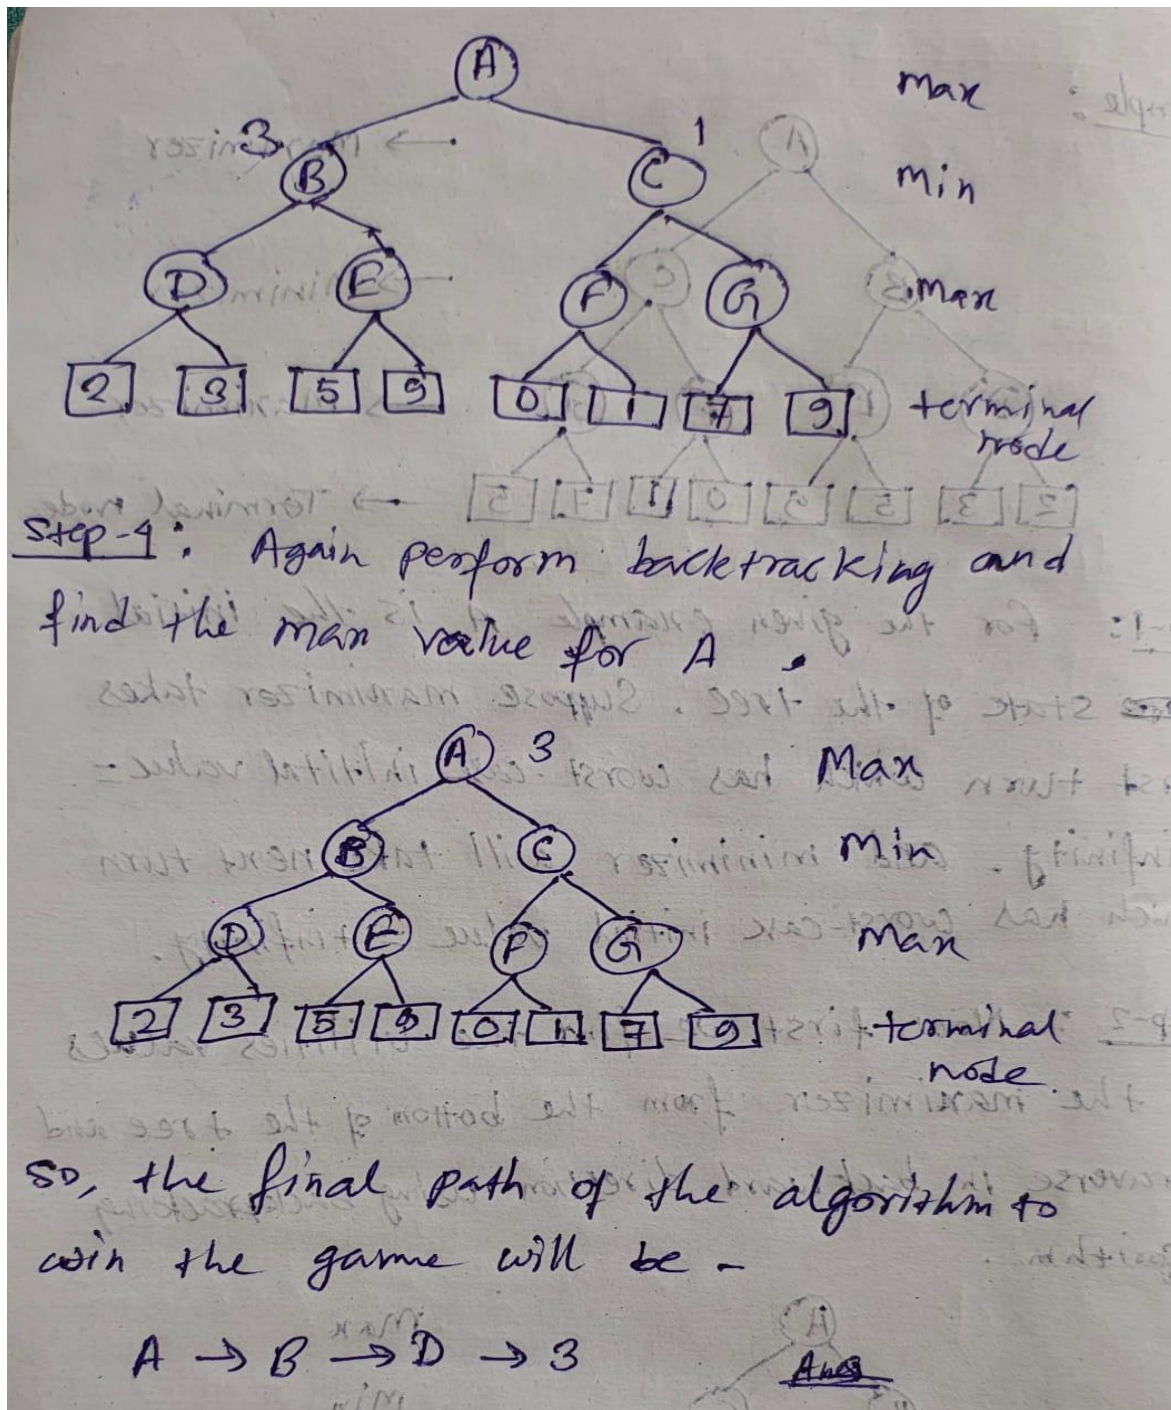 A
Max
3
1
B
C
Min
D
E
F
G
Max
2 3 5 9 0 1 7 9
terminal
node
Step-4: Again perform backtracking and
find the max value for A.
A 3
Max
B
C
Min
D
E
F
G
Max
2 3 5 9 0 1 7 9
terminal
node
So, the final path of the algorithm to
win the game will be -
A → B → D → 3